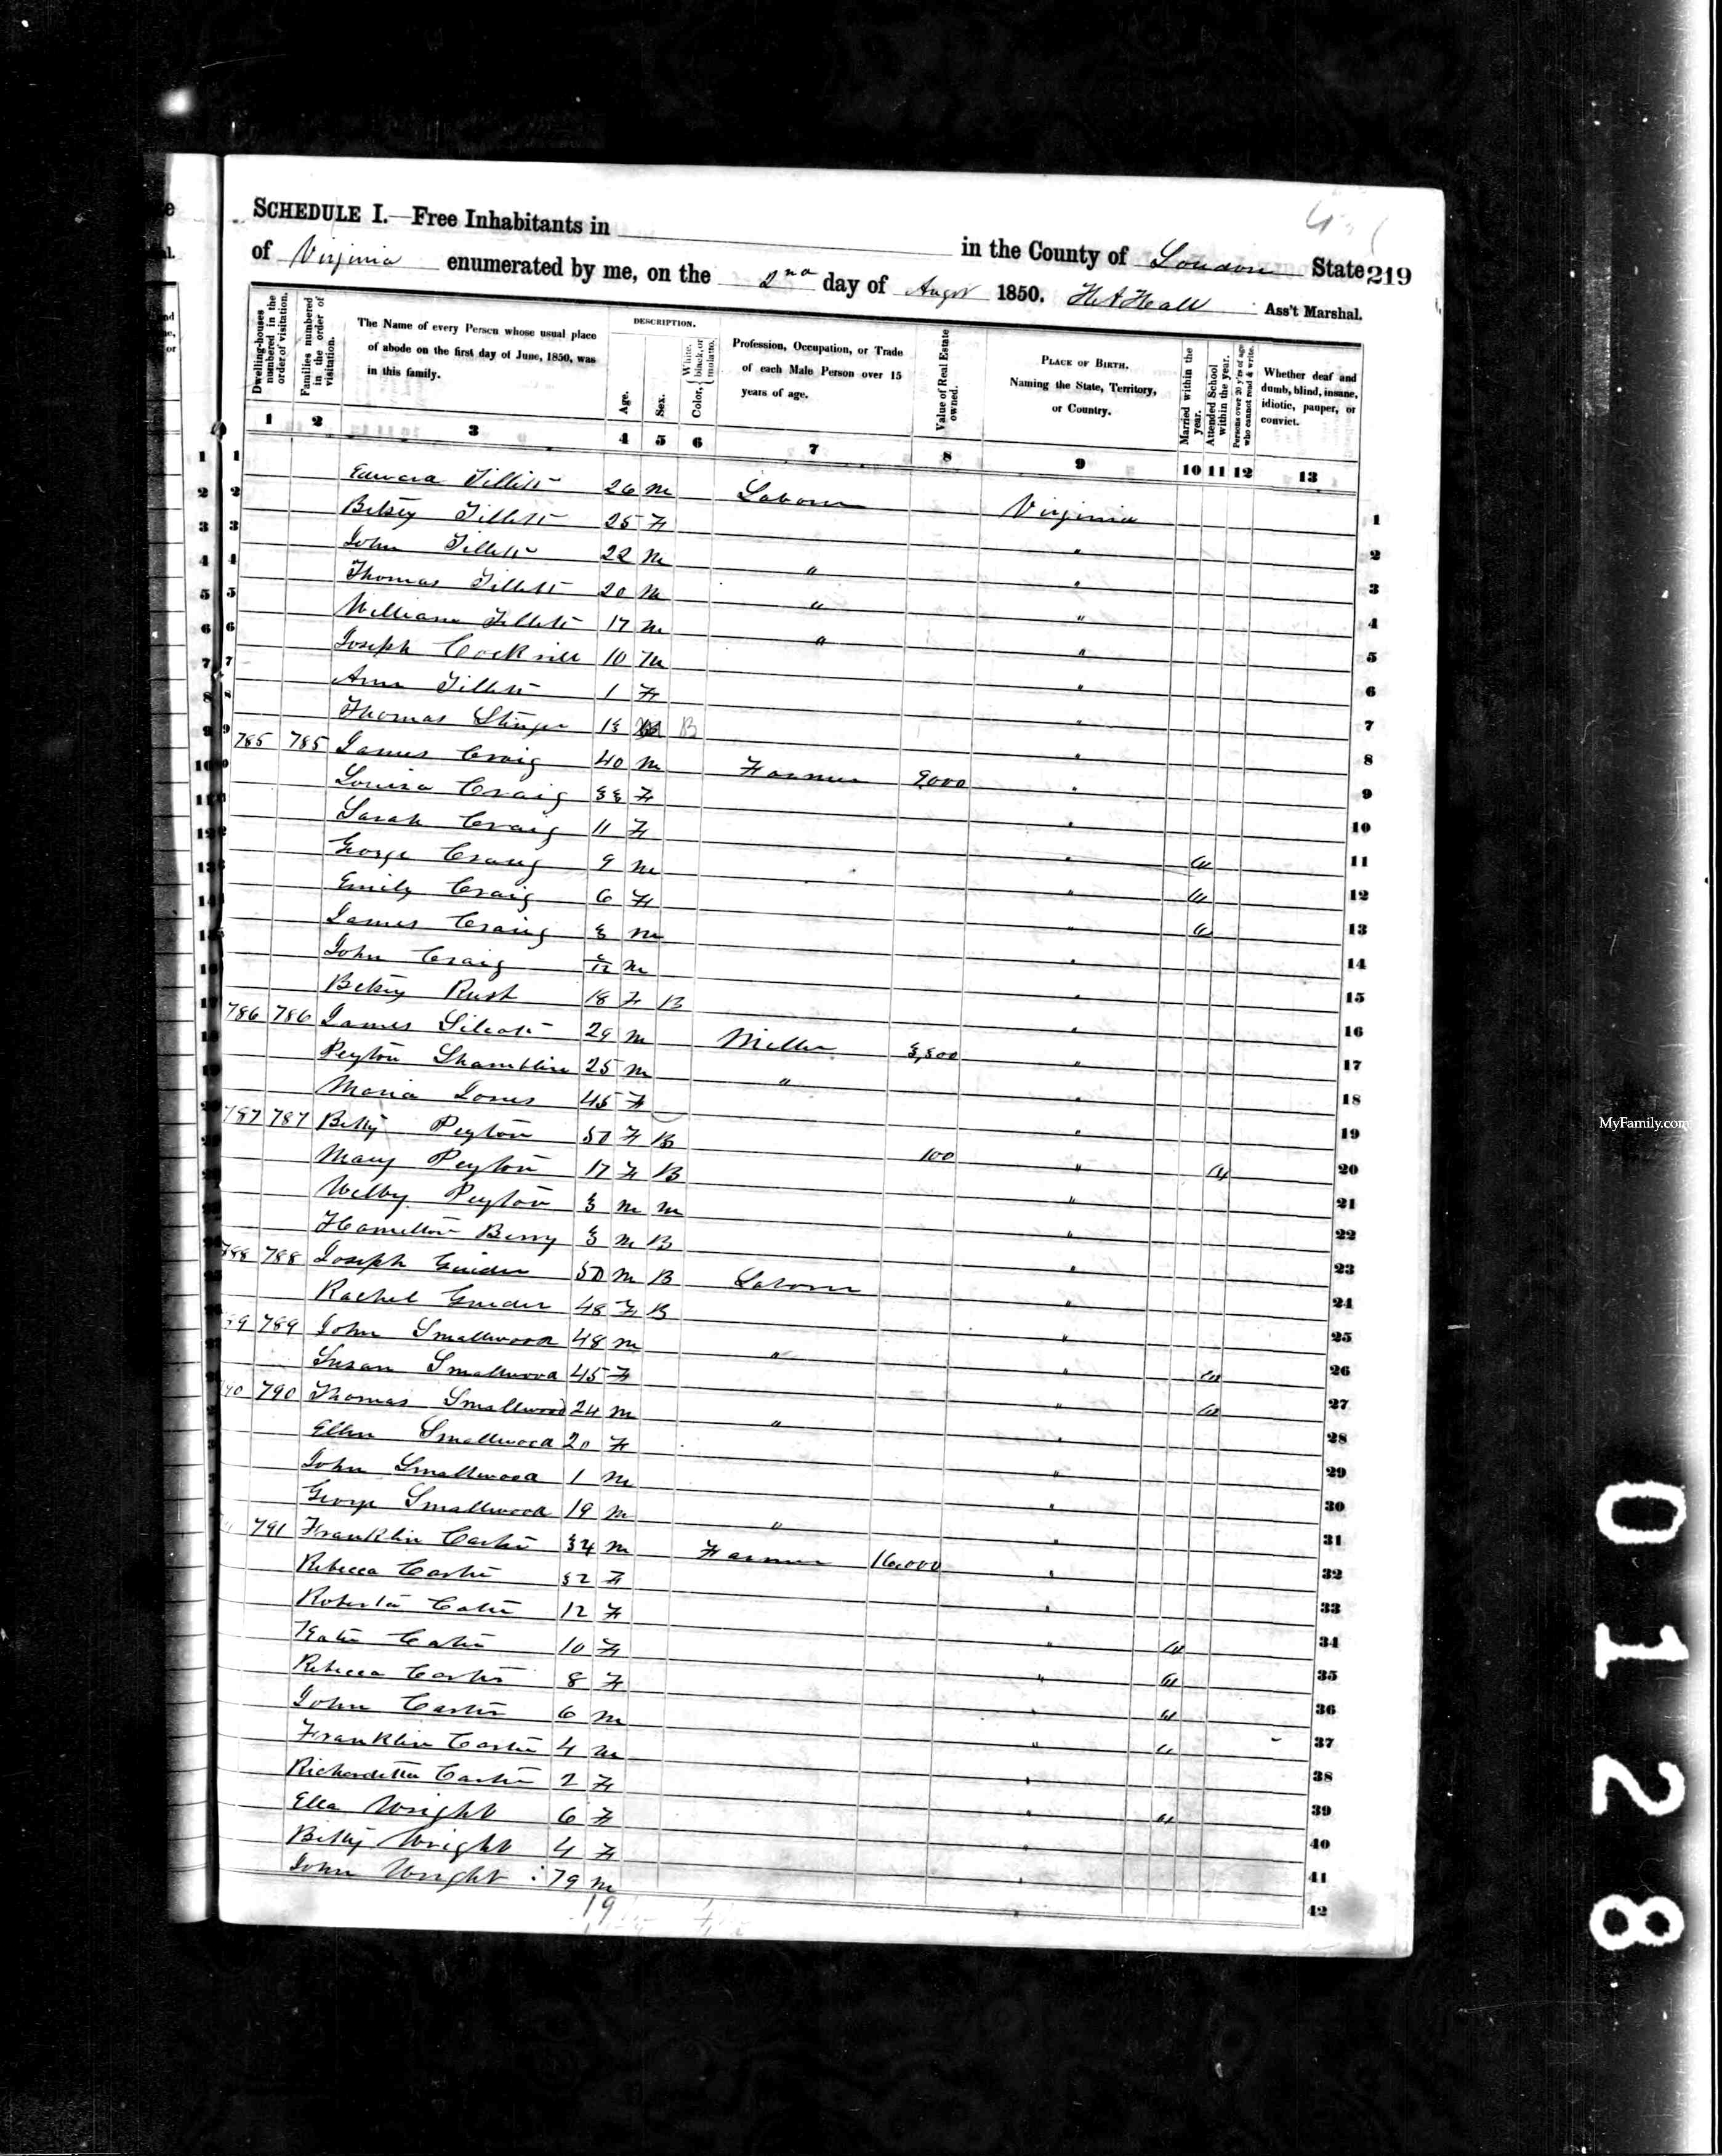 SCHEDULE I.—Free Inhabitants in in the County of Loudoun State 219
of Virginia enumerated by me, on the 2nd day of Augst 1850. H A Hall Ass't Marshal.
Dwelling-houses numbered in the order of visitation.
Families numbered in the order of visitation.
The Name of every Person whose usual place of abode on the first day of June, 1850, was in this family.
DESCRIPTION.
Age.
Sex.
Color, White, black, or mulatto.
Profession, Occupation, or Trade of each Male Person over 15 years of age.
Value of Real Estate owned.
PLACE OF BIRTH. Naming the State, Territory, or Country.
Married within the year.
Attended School within the year.
Persons over 20 y'rs of age who cannot read & write.
Whether deaf and dumb, blind, insane, idiotic, pauper, or convict.
1 2 3 4 5 6 7 8 9 10 11 12 13
1 Edward Tillett 26 m Laborer Virginia 1
2 Betsey Tillett 25 F " 2
3 John Tillett 22 m " " 3
4 Thomas Tillett 20 m " " 4
5 William Tillett 17 m " " 5
6 Joseph Cockrill 10 m " 6
7 Ann Tillett 1 F " 7
8 Thomas 13 B " 8
9 785 785 James Craig 40 m Farmer 9,000 " 9
10 Louisa Craig 33 F " 10
11 Sarah Craig 11 F " 11
12 George Craig 9 m " 12
13 Emily Craig 6 F " 13
James Craig 3 m " 14
John Craig /12 m " 15
Betsy Rust 18 F B " 16
786 786 James 29 m Miller 3,500 " 17
Peyton Shamblin 25 m " " 18
Maria Jones 45 F " 19
787 787 Betty Peyton 50 F B 100 " 20
Mary Peyton 17 F B " 21
Wilby Peyton 3 m m " 22
Hamilton Berry 3 m B " 23
788 788 Joseph 50 m B Laborer " 24
Rachel 48 F B " 25
789 John Smallwood 48 m " " 26
Susan Smallwood 45 F " 27
790 Thomas Smallwood 24 m " " 28
Ellen Smallwood 20 F " 29
John Smallwood 1 m " 30
George Smallwood 19 m " " 31
791 Franklin Carter 34 m Farmer 16,000 " 32
Rebecca Carter 32 F " 33
Roberta Carter 12 F " 34
Kate Carter 10 F " 35
Rebecca Carter 8 F " 36
John Carter 6 m " 37
Franklin Carter 4 m " 38
Richardetta Carter 2 F " 39
Ella Wright 6 F " 40
Betty Wright 4 F " 41
John Wright 79 m " 42
19
MyFamily.com
0128